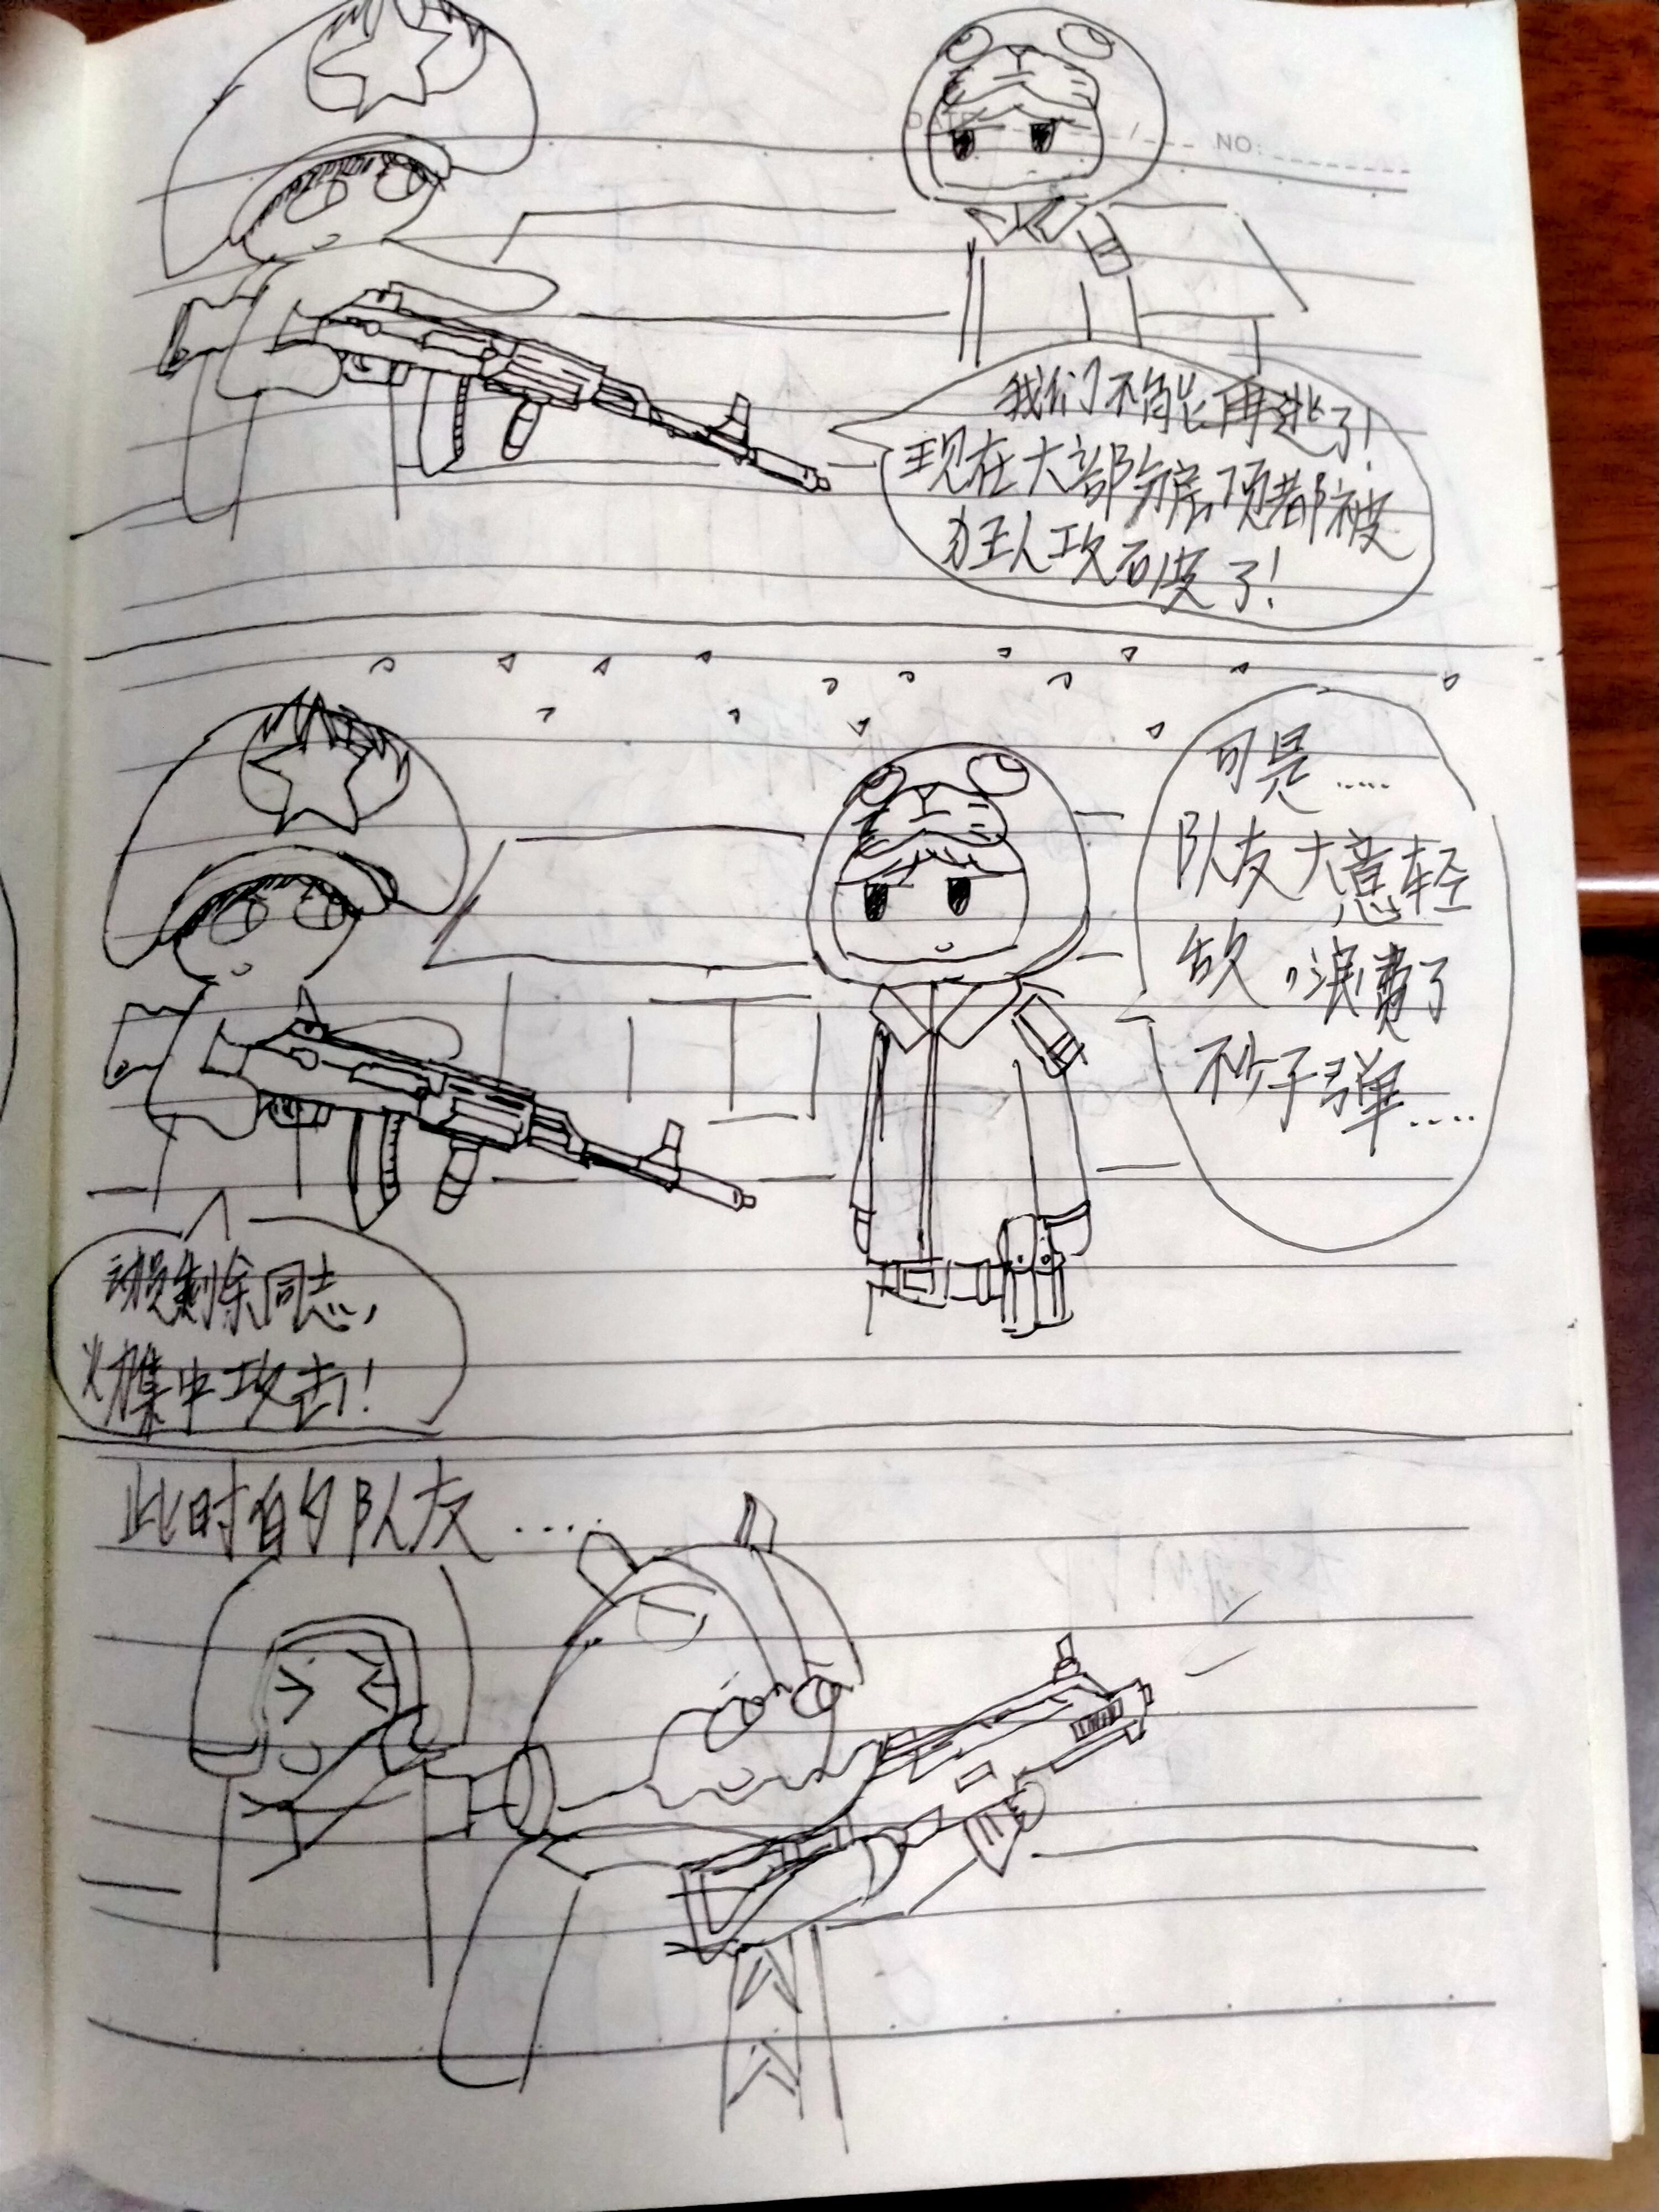 DATE / NO:
我们不能再逃了!
现在大部分房顶都被
狂人攻破了!
可是……
队友大意轻
敌,浪费了
不少子弹……
动员剩余同志,
火力集中攻击!
此时的队友……